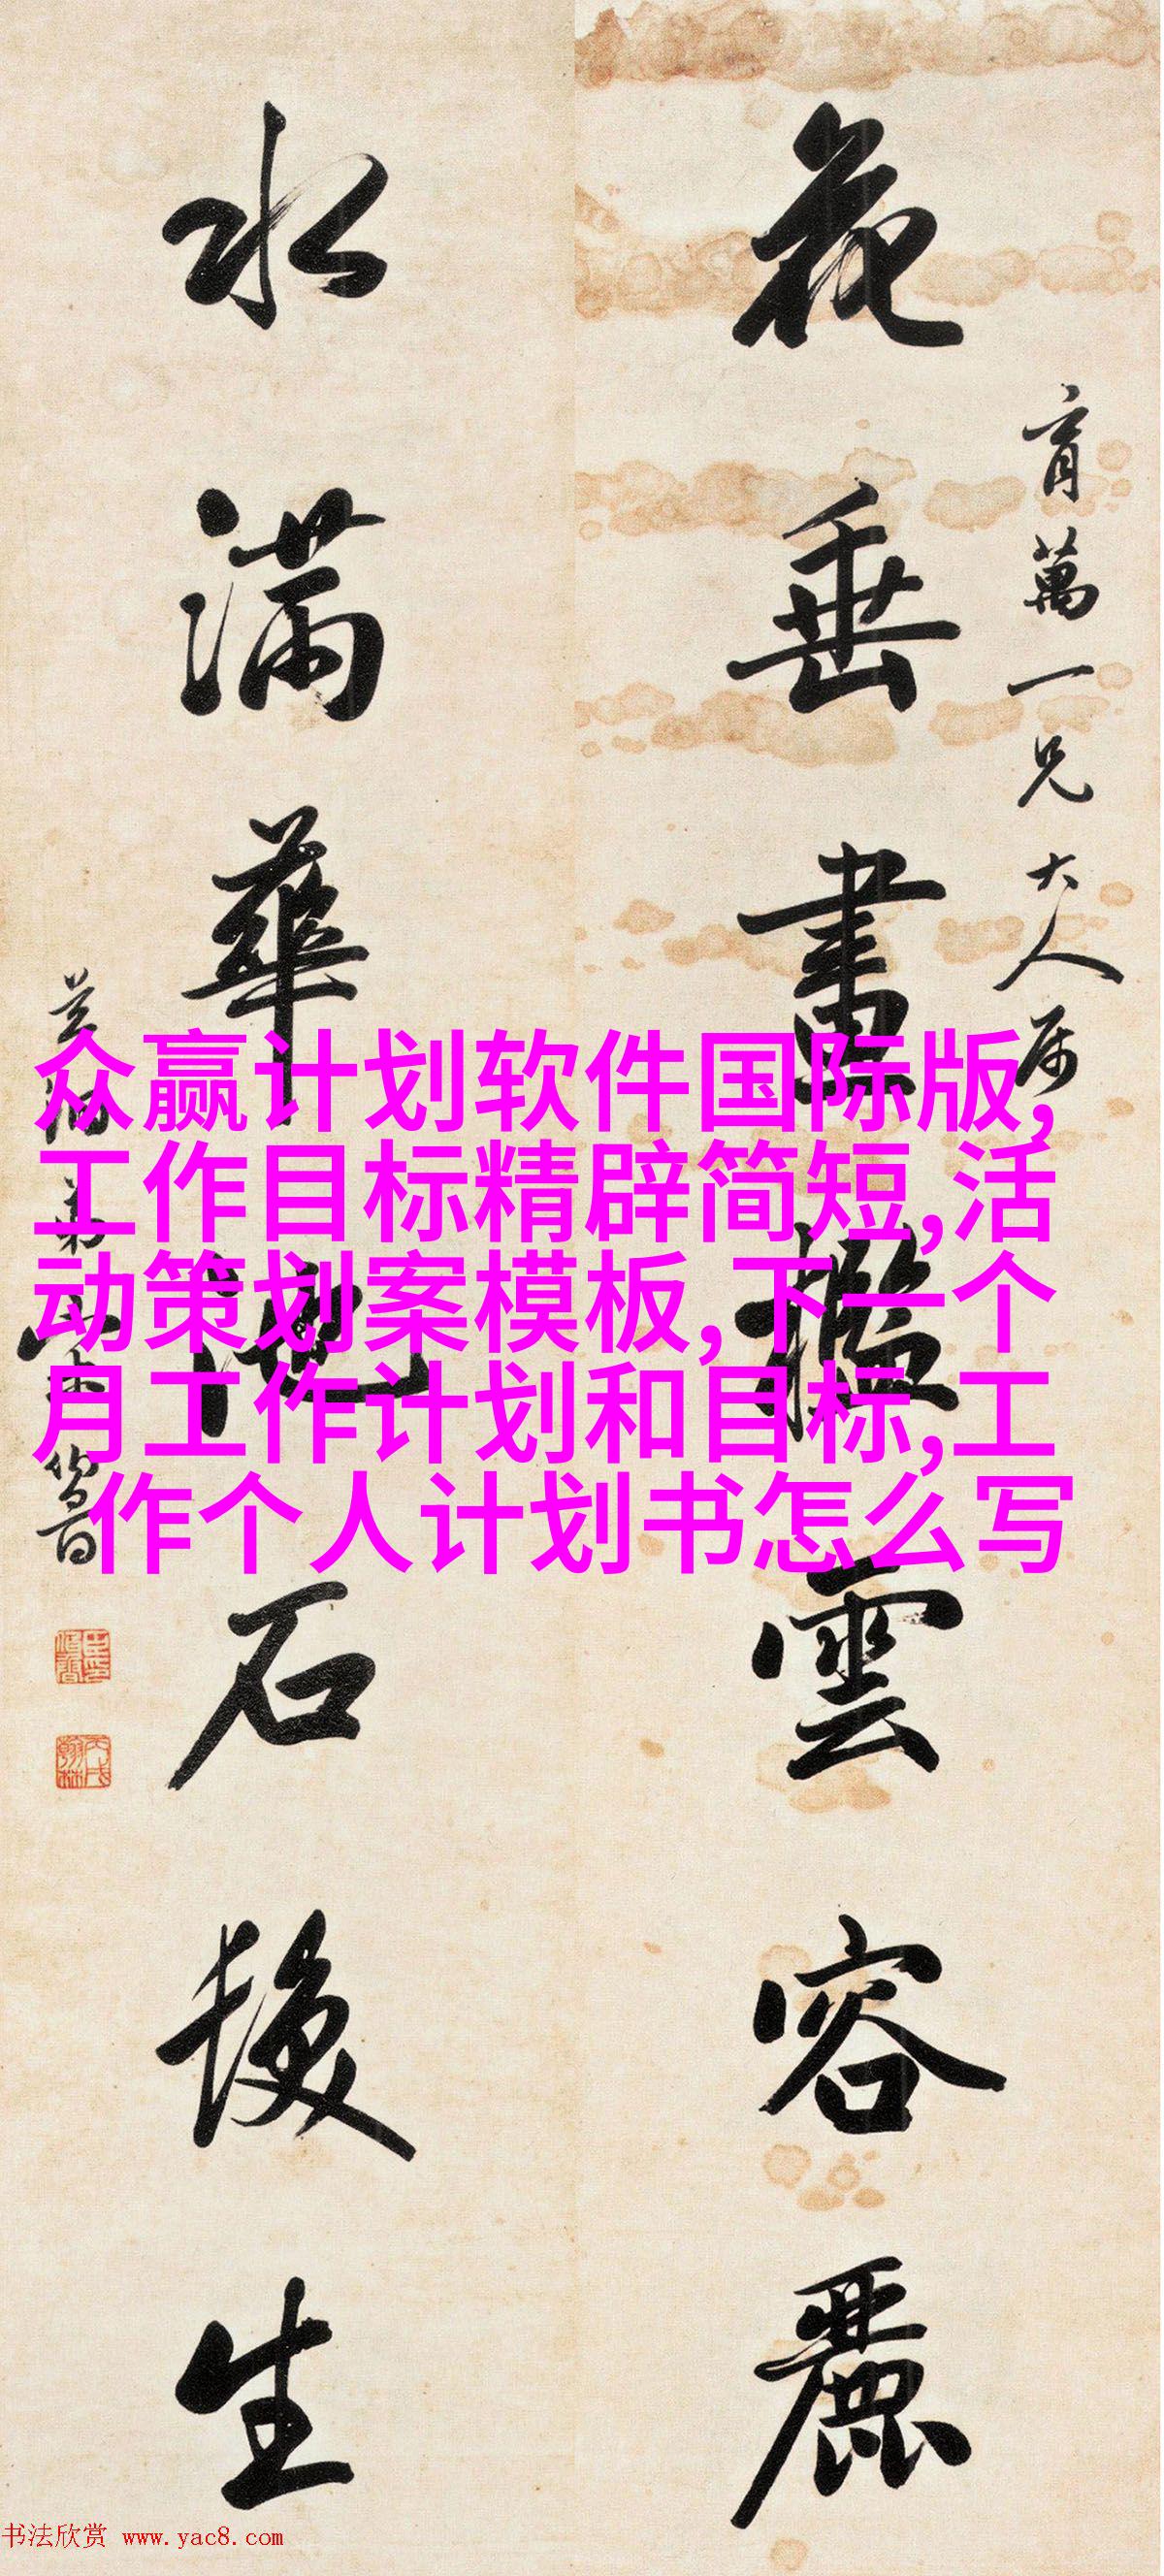 育萬一兄大人属
花垂畫檻雲容麗
水滿華池石髮生
丙戌翰林
众赢计划软件国际版,
工作目标精辟简短,活
动策划案模板,下一个
月工作计划和目标,工
作个人计划书怎么写
书法欣赏 www.yac8.com